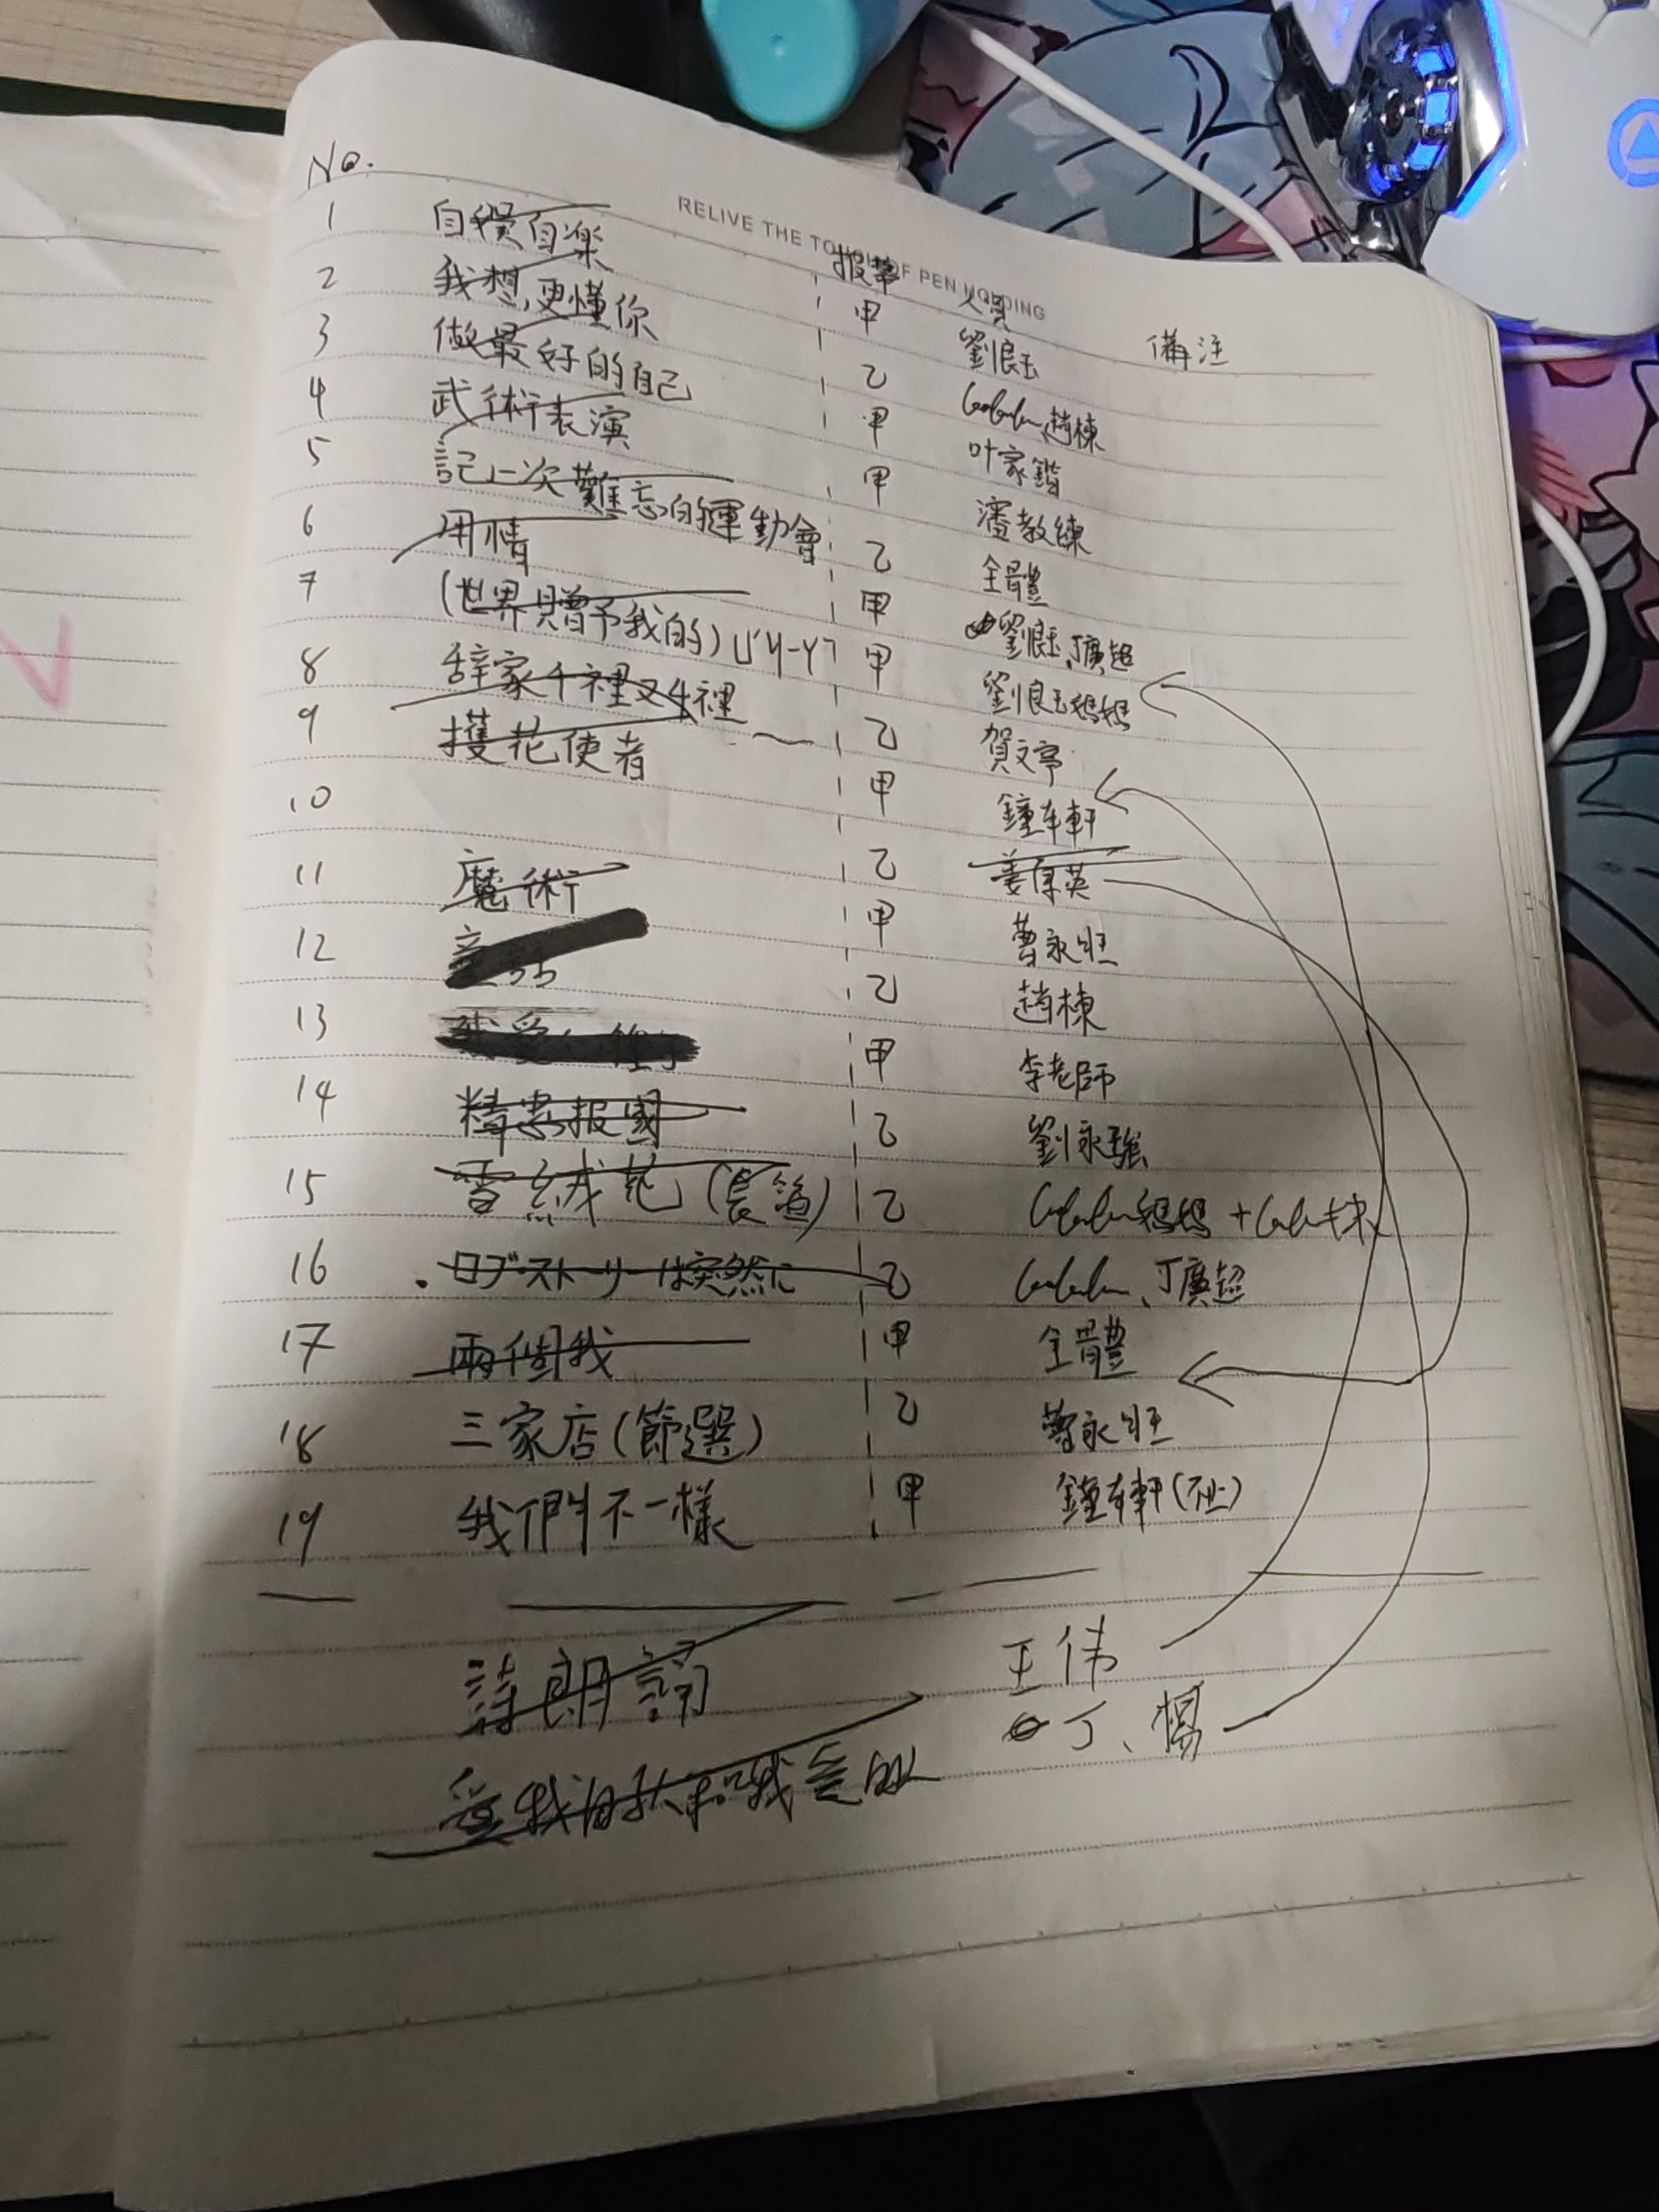 No.
RELIVE THE TOUCH OF PEN HOLDING
报幕 人員 備注
1 自娛自樂 甲 劉良玉
2 我想,更懂你 乙 趙棟
3 做最好的自己 甲 叶家鍇
4 武術表演 甲 潘教練
5 記一次難忘的運動會 乙 全體
6 用情 甲 劉良玉、丁廣超
7 (世界贈予我的) 甲 劉良玉媽媽
8 辞家千裡又千裡 乙 賀文亭
9 護花使者 甲 鐘車軒
10 乙 姜厚英
11 魔術 甲 曹永旺
12 乙 趙棟
13 甲 李老師
14 精忠报國 乙 劉永強
15 雪絨花(長笛) 乙 媽媽 +
16 ラブ·ストーリーは突然に 乙 、丁廣超
17 兩個我 甲 全體
18 三家店(節選) 乙 曹永旺
19 我們不一樣 甲 鐘車軒
詩朗誦 王伟
丁、楊